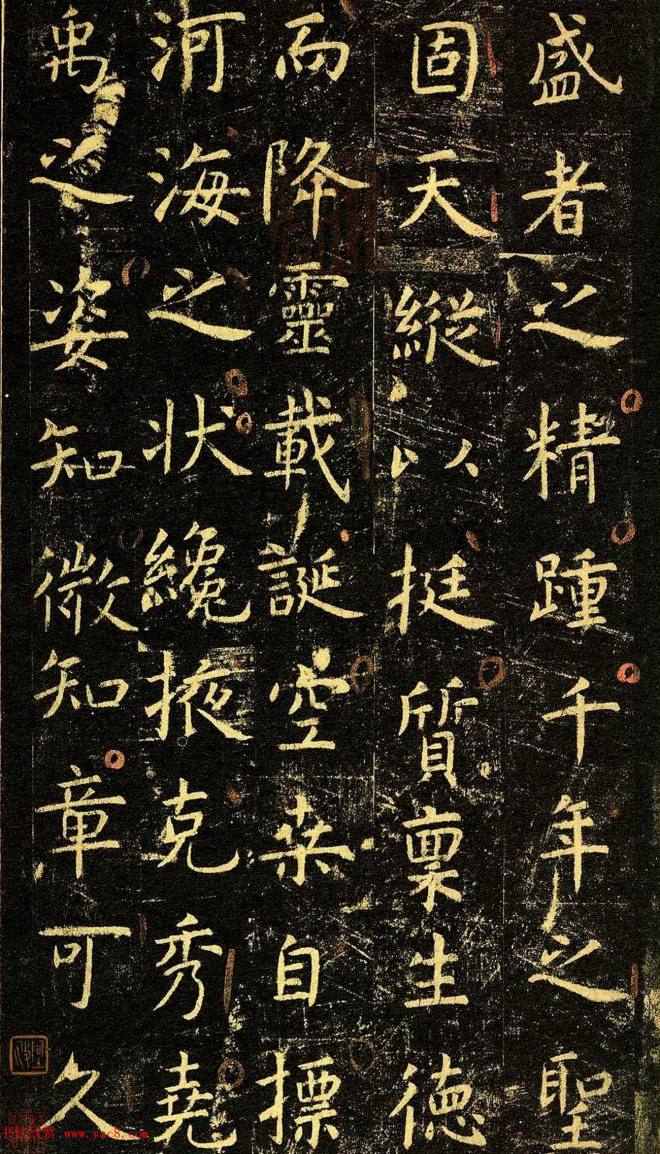 盛者之精踵千年之聖
固天縱以挺質稟生德
而降靈載誕空桒自標
河海之状纔掖克秀堯
禹之姿知微知章可久
www.yac8.com